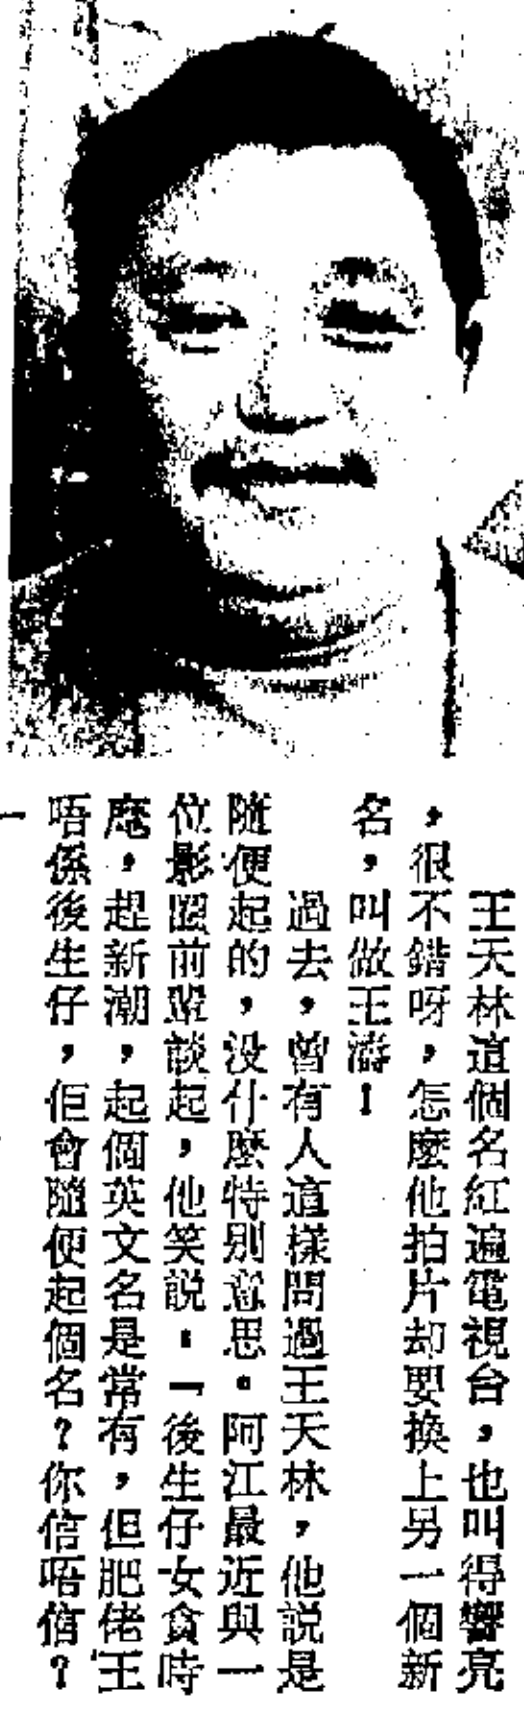 王天林這個名紅遍電視台，也叫得響亮
，很不錯呀，怎麼他拍片却要換上另一個新
名，叫做王濤！
過去，曾有人這樣問過王天林，他説是
隨便起的，没什麼特别意思。阿江最近與一
位影圈前輩談起，他笑説：「後生仔女貪時
麾，趕新潮，起個英文名是常有，但肥佬王
唔係後生仔，佢會隨便起個名？你信唔信？